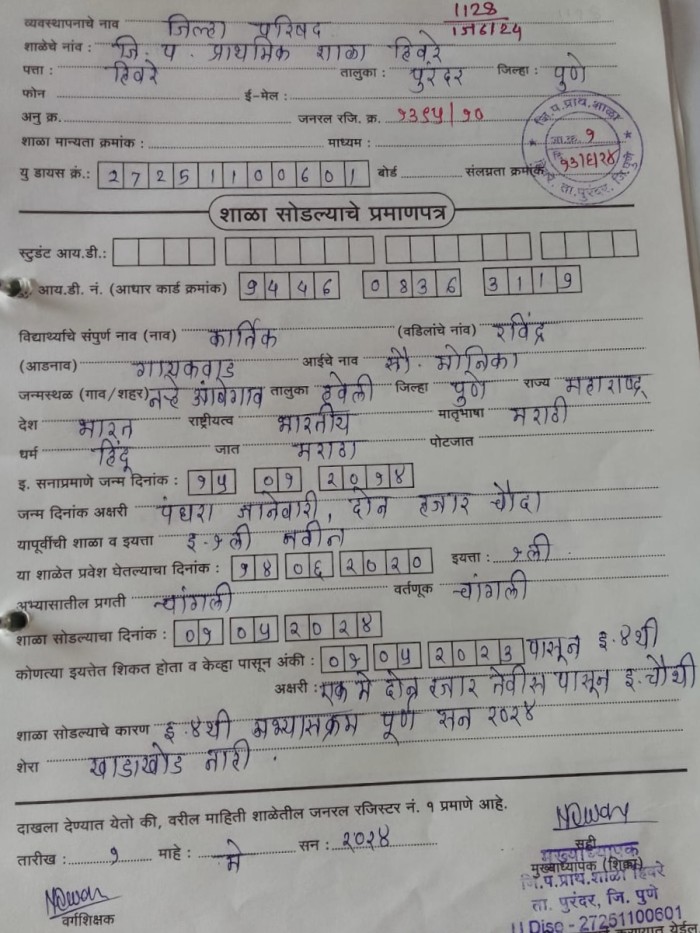 1128
व्यवस्थापनाचे नाव जिल्हा परिषद
शाळेचे नांव : जि. प. प्राथमिक शाळा हिवरे
पत्ता : हिवरे तालुका : पुरंदर जिल्हा : पुणे
फोन ई-मेल :
अनु क्र. जनरल रजि. क्र. १३९५/१०
शाळा मान्यता क्रमांक : माध्यम :
जि.प.प्राथ.शाळा
जा.क्र. १
दि. १३/६/२४
ता.पुरंदर, जि.पुणे
यु डायस क्रं.: 27251100601 बोर्ड संलग्नता क्रमांक
शाळा सोडल्याचे प्रमाणपत्र
स्टुडंट आय.डी.:
आय.डी. नं. (आधार कार्ड क्रमांक) 9446 0836 3119
विद्यार्थ्याचे संपुर्ण नाव (नाव) कार्तिक (वडिलांचे नांव) रविंद्र
(आडनाव) गायकवाड आईचे नाव सौ. मोनिका
जन्मस्थळ (गाव/शहर) नऱ्हे आंबेगाव तालुका हवेली जिल्हा पुणे राज्य महाराष्ट्र
देश भारत राष्ट्रीयत्व भारतीय मातृभाषा मराठी
धर्म हिंदू जात मराठा पोटजात
इ. सनाप्रमाणे जन्म दिनांक : १५ ०१ २०१४
जन्म दिनांक अक्षरी पंधरा जानेवारी, दोन हजार चौदा
यापूर्वीची शाळा व इयत्ता इ.१ली नवीन
या शाळेत प्रवेश घेतल्याचा दिनांक : १४ ०६ २०२० इयत्ता : १ली
अभ्यासातील प्रगती चांगली वर्तणूक चांगली
शाळा सोडल्याचा दिनांक : ०१ ०५ २०२४
कोणत्या इयत्तेत शिकत होता व केव्हा पासून अंकी : ०१ ०५ २०२३ पासून इ.४थी
अक्षरी : एक मे दोन हजार तेवीस पासून इ.चौथी
शाळा सोडल्याचे कारण इ.४थी अभ्यासक्रम पूर्ण सन २०२४
शेरा खाडाखोड नाही.
दाखला देण्यात येतो की, वरील माहिती शाळेतील जनरल रजिस्टर नं. १ प्रमाणे आहे.
तारीख : १ माहे : मे सन : २०२४
सही
मुख्याध्यापक
मुख्याध्यापक (शिक्का)
जि.प.प्राथ.शाळा हिवरे
ता. पुरंदर, जि. पुणे
U Dise - 27251100601
वर्गशिक्षक